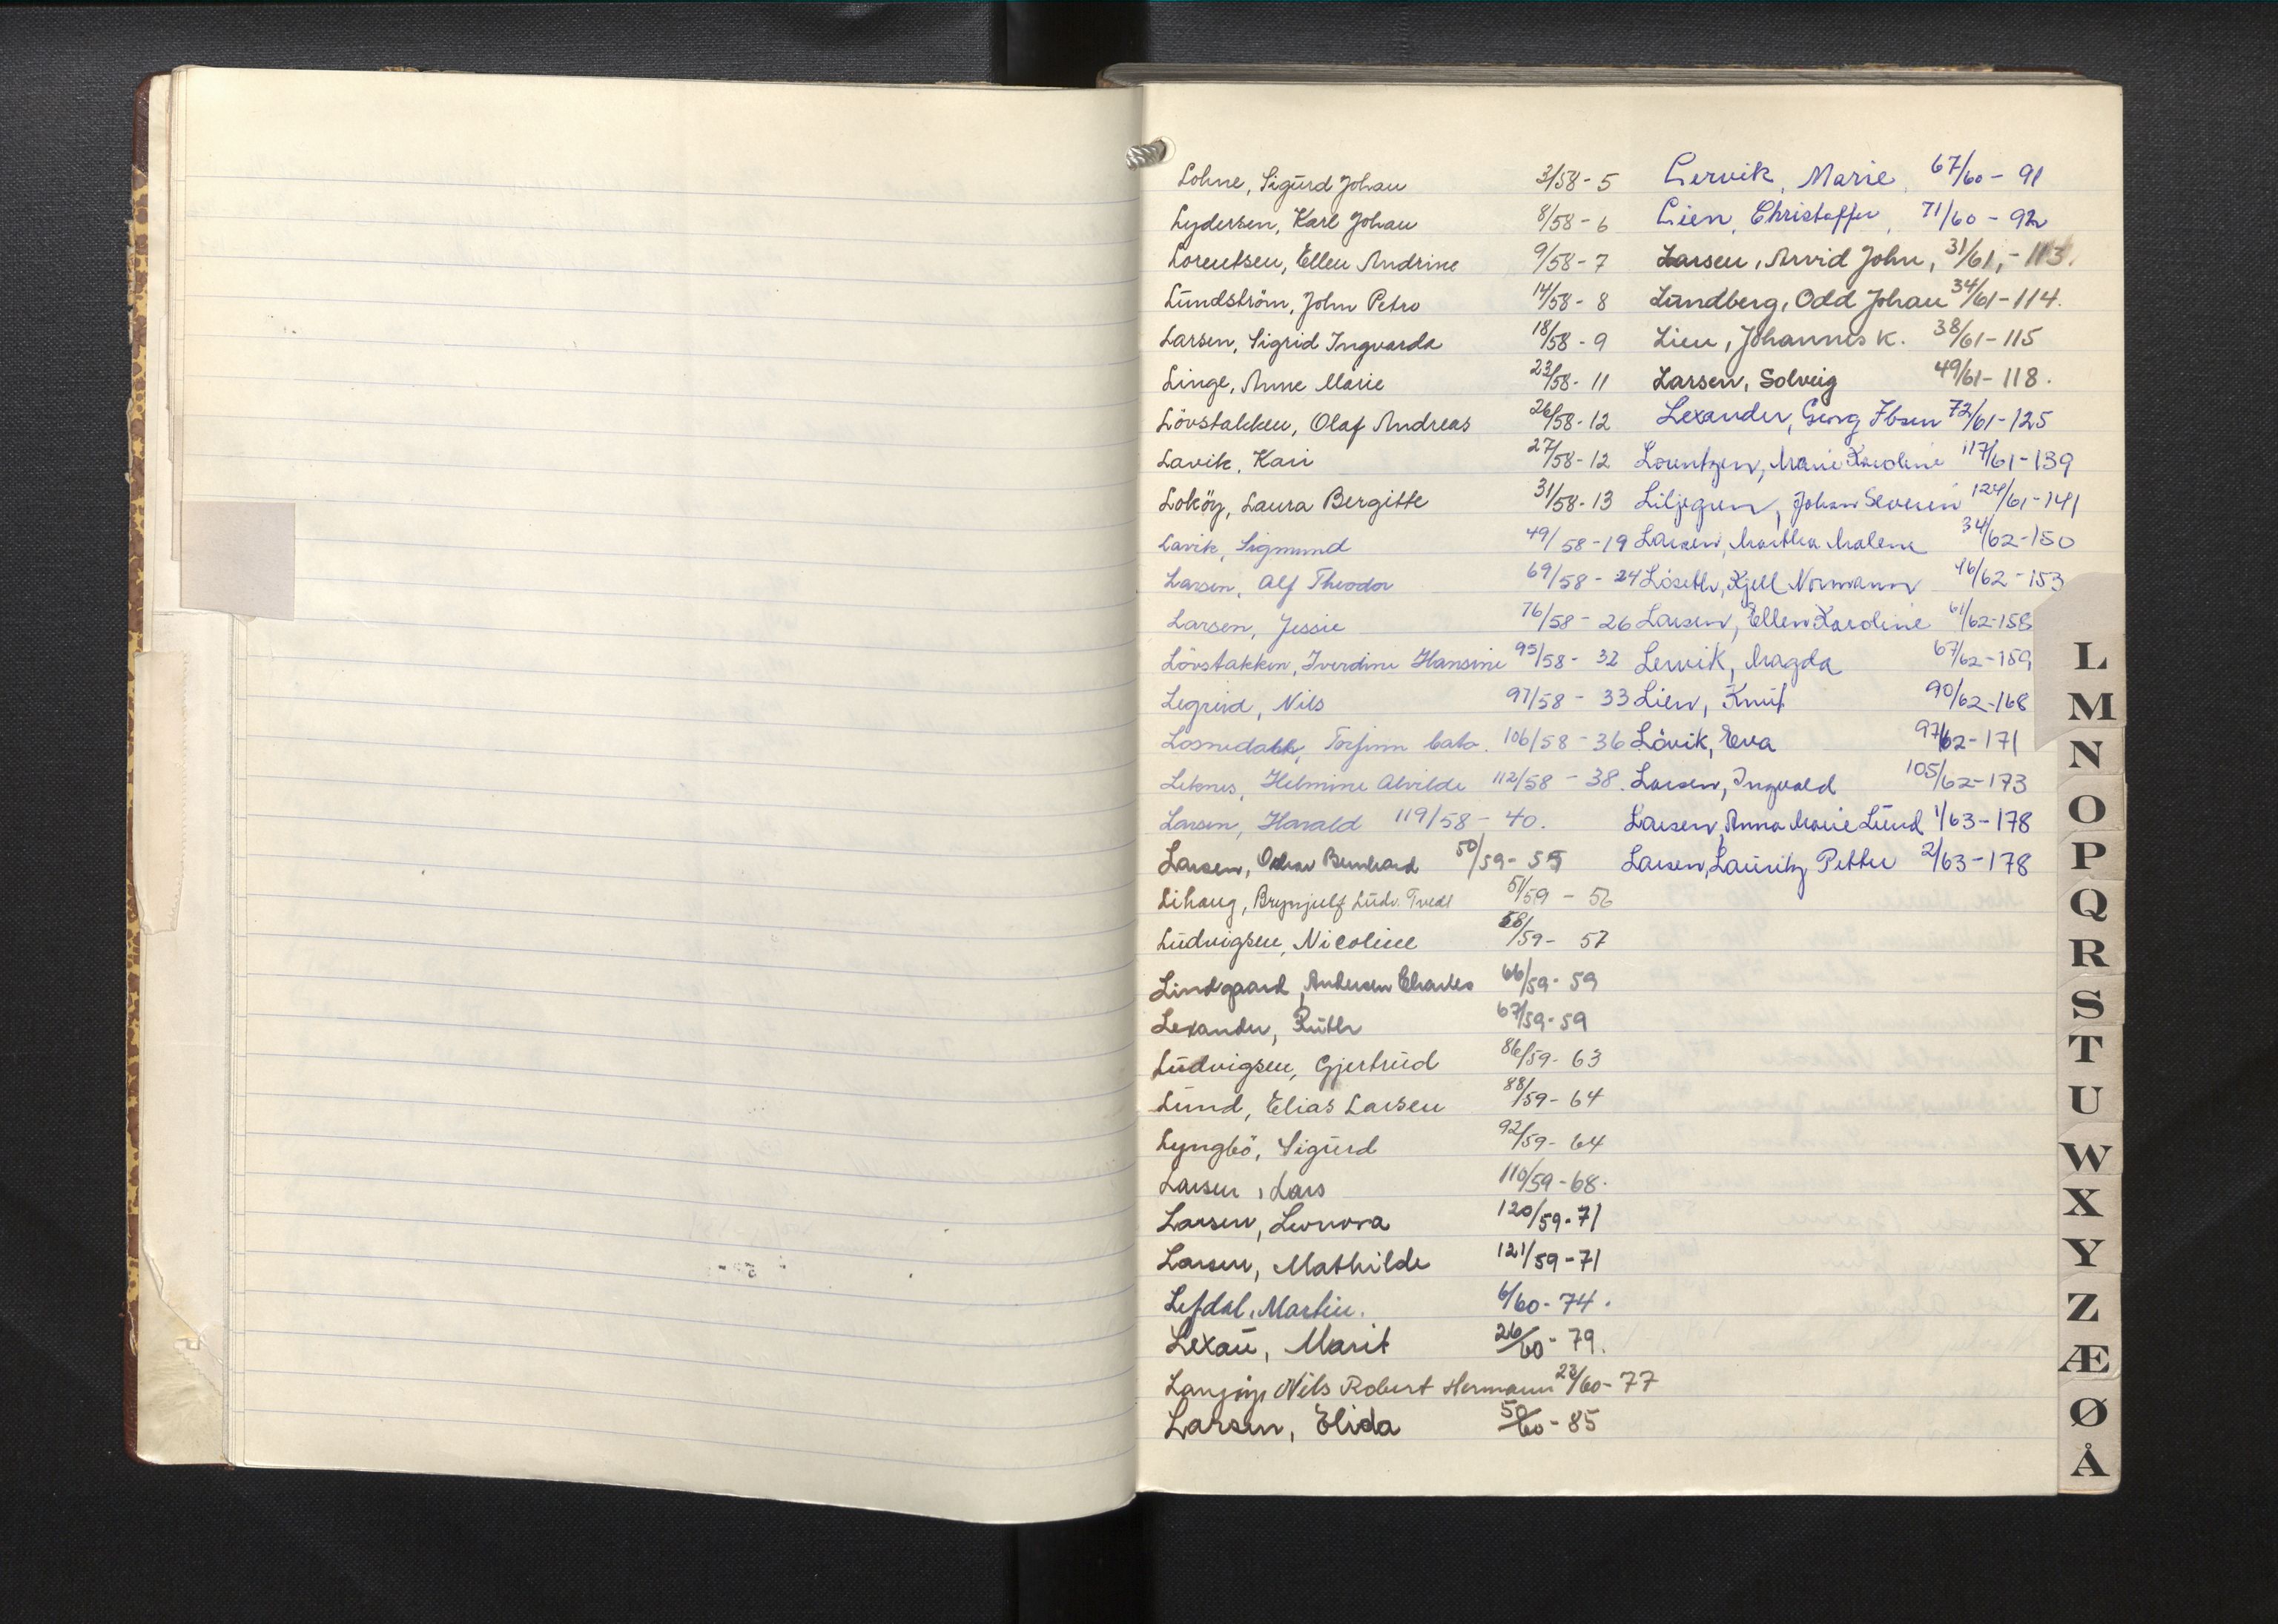 Lohne, Sigurd Johan 3/58 - 5
Lydersen, Karl Johan 8/58 - 6
Lorentsen, Ellen Andrine 9/58 - 7
Lundström, John Petro 14/58 - 8
Larsen, Sigrid Ingvarda 18/58 - 9
Linge, Anne Marie 23/58 - 11
Lövstakken, Olaf Andreas 26/58 - 12
Lavik, Kari 27/58 - 12
Loköy, Laura Bergitte 31/58 - 13
Lavik, Sigmund 49/58 - 19
Larsen, Alf Theodor 69/58 - 24
Larsen, Jessie 76/58 - 26
Lövstakken, Iverdine Hansine 95/58 - 32
Legreid, Nils 97/58 - 33
Losnedahl, Torfinn Cato. 106/58 - 36
Leknes, Helmine Alvilde 112/58 - 38.
Larsen, Harald 119/58 - 40.
Larsen, Oskar Bernhard 50/59 - 55
Lihaug, Brynjulf Ludv. Tvedt 51/59 - 56
Ludvigsen, Nicoline 58/59 - 57
Lindgaard, Andersen Charles 66/59 - 59
Lexander, Ruth 67/59 - 59
Ludvigsen, Gjertrud 86/59 - 63
Lund, Elias Larsen 88/59 - 64
Lyngbö, Sigurd 92/59 - 64
Larsen, Lars 110/59 - 68.
Larsen, Leonora 120/59 - 71
Larsen, Mathilde 121/59 - 71
Lefdal, Martin. 6/60 - 74.
Lexau, Marit 26/60 - 79.
Nils Robert Hermann 23/60 - 77
Larsen, Elida 50/60 - 85
Lervik, Marie, 67/60 - 91
Lien, Christoffer, 71/60 - 92
Larsen, Arvid John, 31/61, - 113.
Lundberg, Odd Johan 34/61 - 114.
Lien, Johannes K. 38/61 - 115
Larsen, Solveig 49/61 - 118.
Lexander, Georg Ibsen 72/61 - 125
Lorentzen, Marie Karoline 117/61 - 139
Liljegren, Johan Severin 124/61 - 141
Larsen, Martha Malene 34/62 - 150
Löseth, Kjell Normann 46/62 - 153
Larsen, Ellen Karoline 61/62 - 158
Lervik, Magda 67/62 - 159
Lien, Knut 90/62 - 168
Lövik, Eva 97/62 - 171
Larsen, Ingvald 105/62 - 173
Larsen, Anna Marie Lund 1/63 - 178
Larsen, Lauritz Petter 2/63 - 178
L
M
N
O
P
Q
R
S
T
U
W
X
Y
Z
Æ
Ø
Å